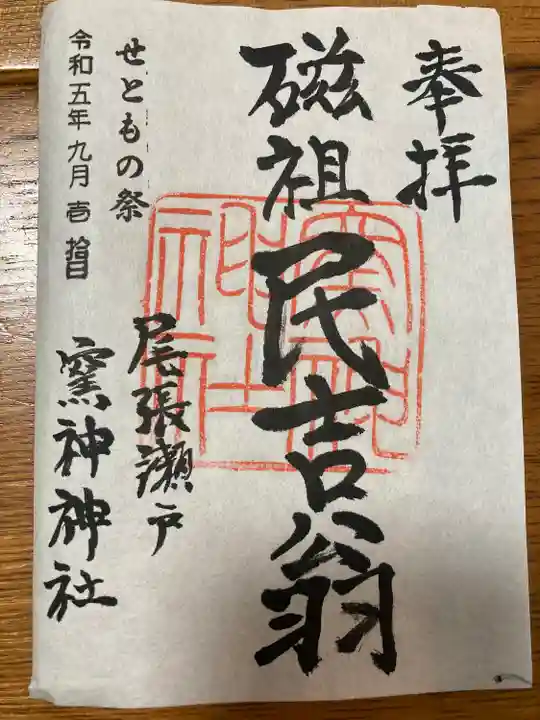 奉拝
磁祖民吉翁
せともの祭
尾張瀬戸
令和五年九月壱拾日
窯神神社
窯神
神社